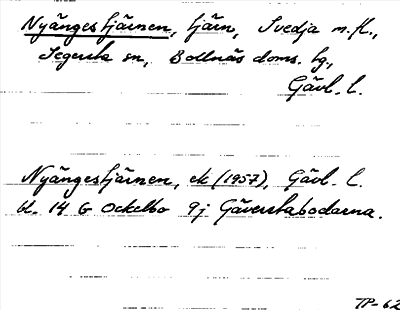 Nyängestjärnen, tjärn, Svedja m.fl.,
Segersta sn, Bollnäs doms. tg,
Gävl. l.
Nyängestjärnen, ek (1957), Gävl. l.
bl. 14 G Ockelbo 9j Gäverstabodarna.
TP-62